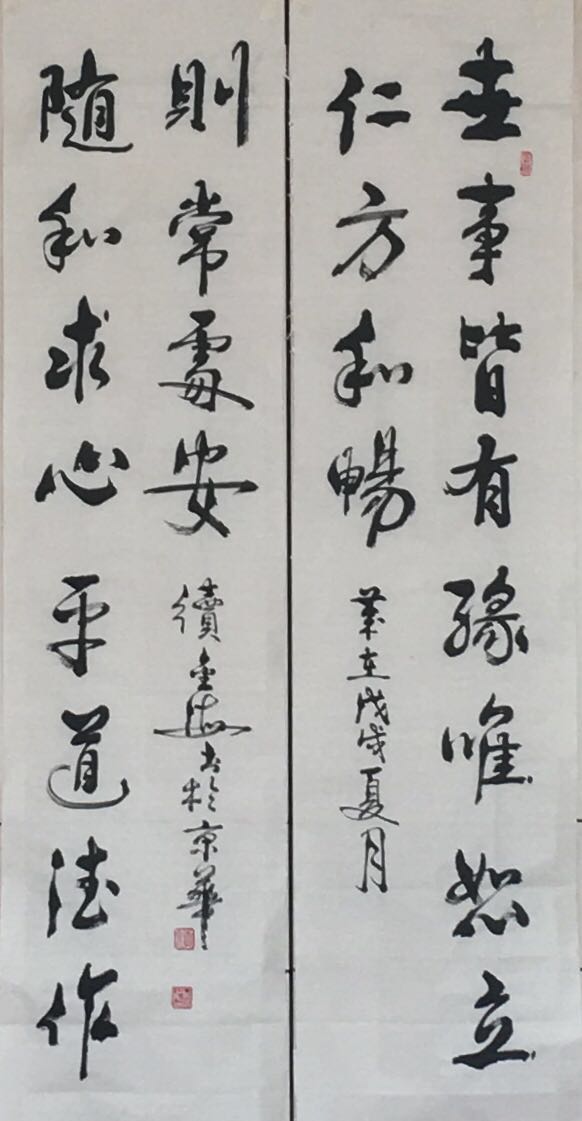 世事皆有緣唯恕立
仁方和暢
歲在戊戌夏月
随和求心平道德作
則常處安
續金海书於京華